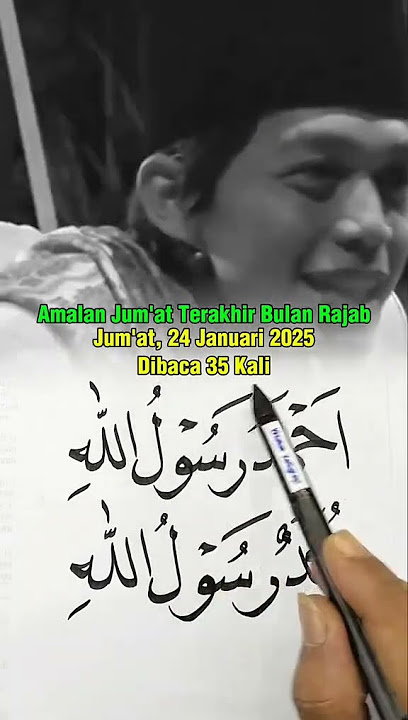 Amalan Jum'at Terakhir Bulan Rajab
Jum'at, 24 Januari 2025
Dibaca 35 Kali
اَحْمَدُ رَسُوْلُ اللّٰهِ
رَسُوْلُ اللّٰهِ